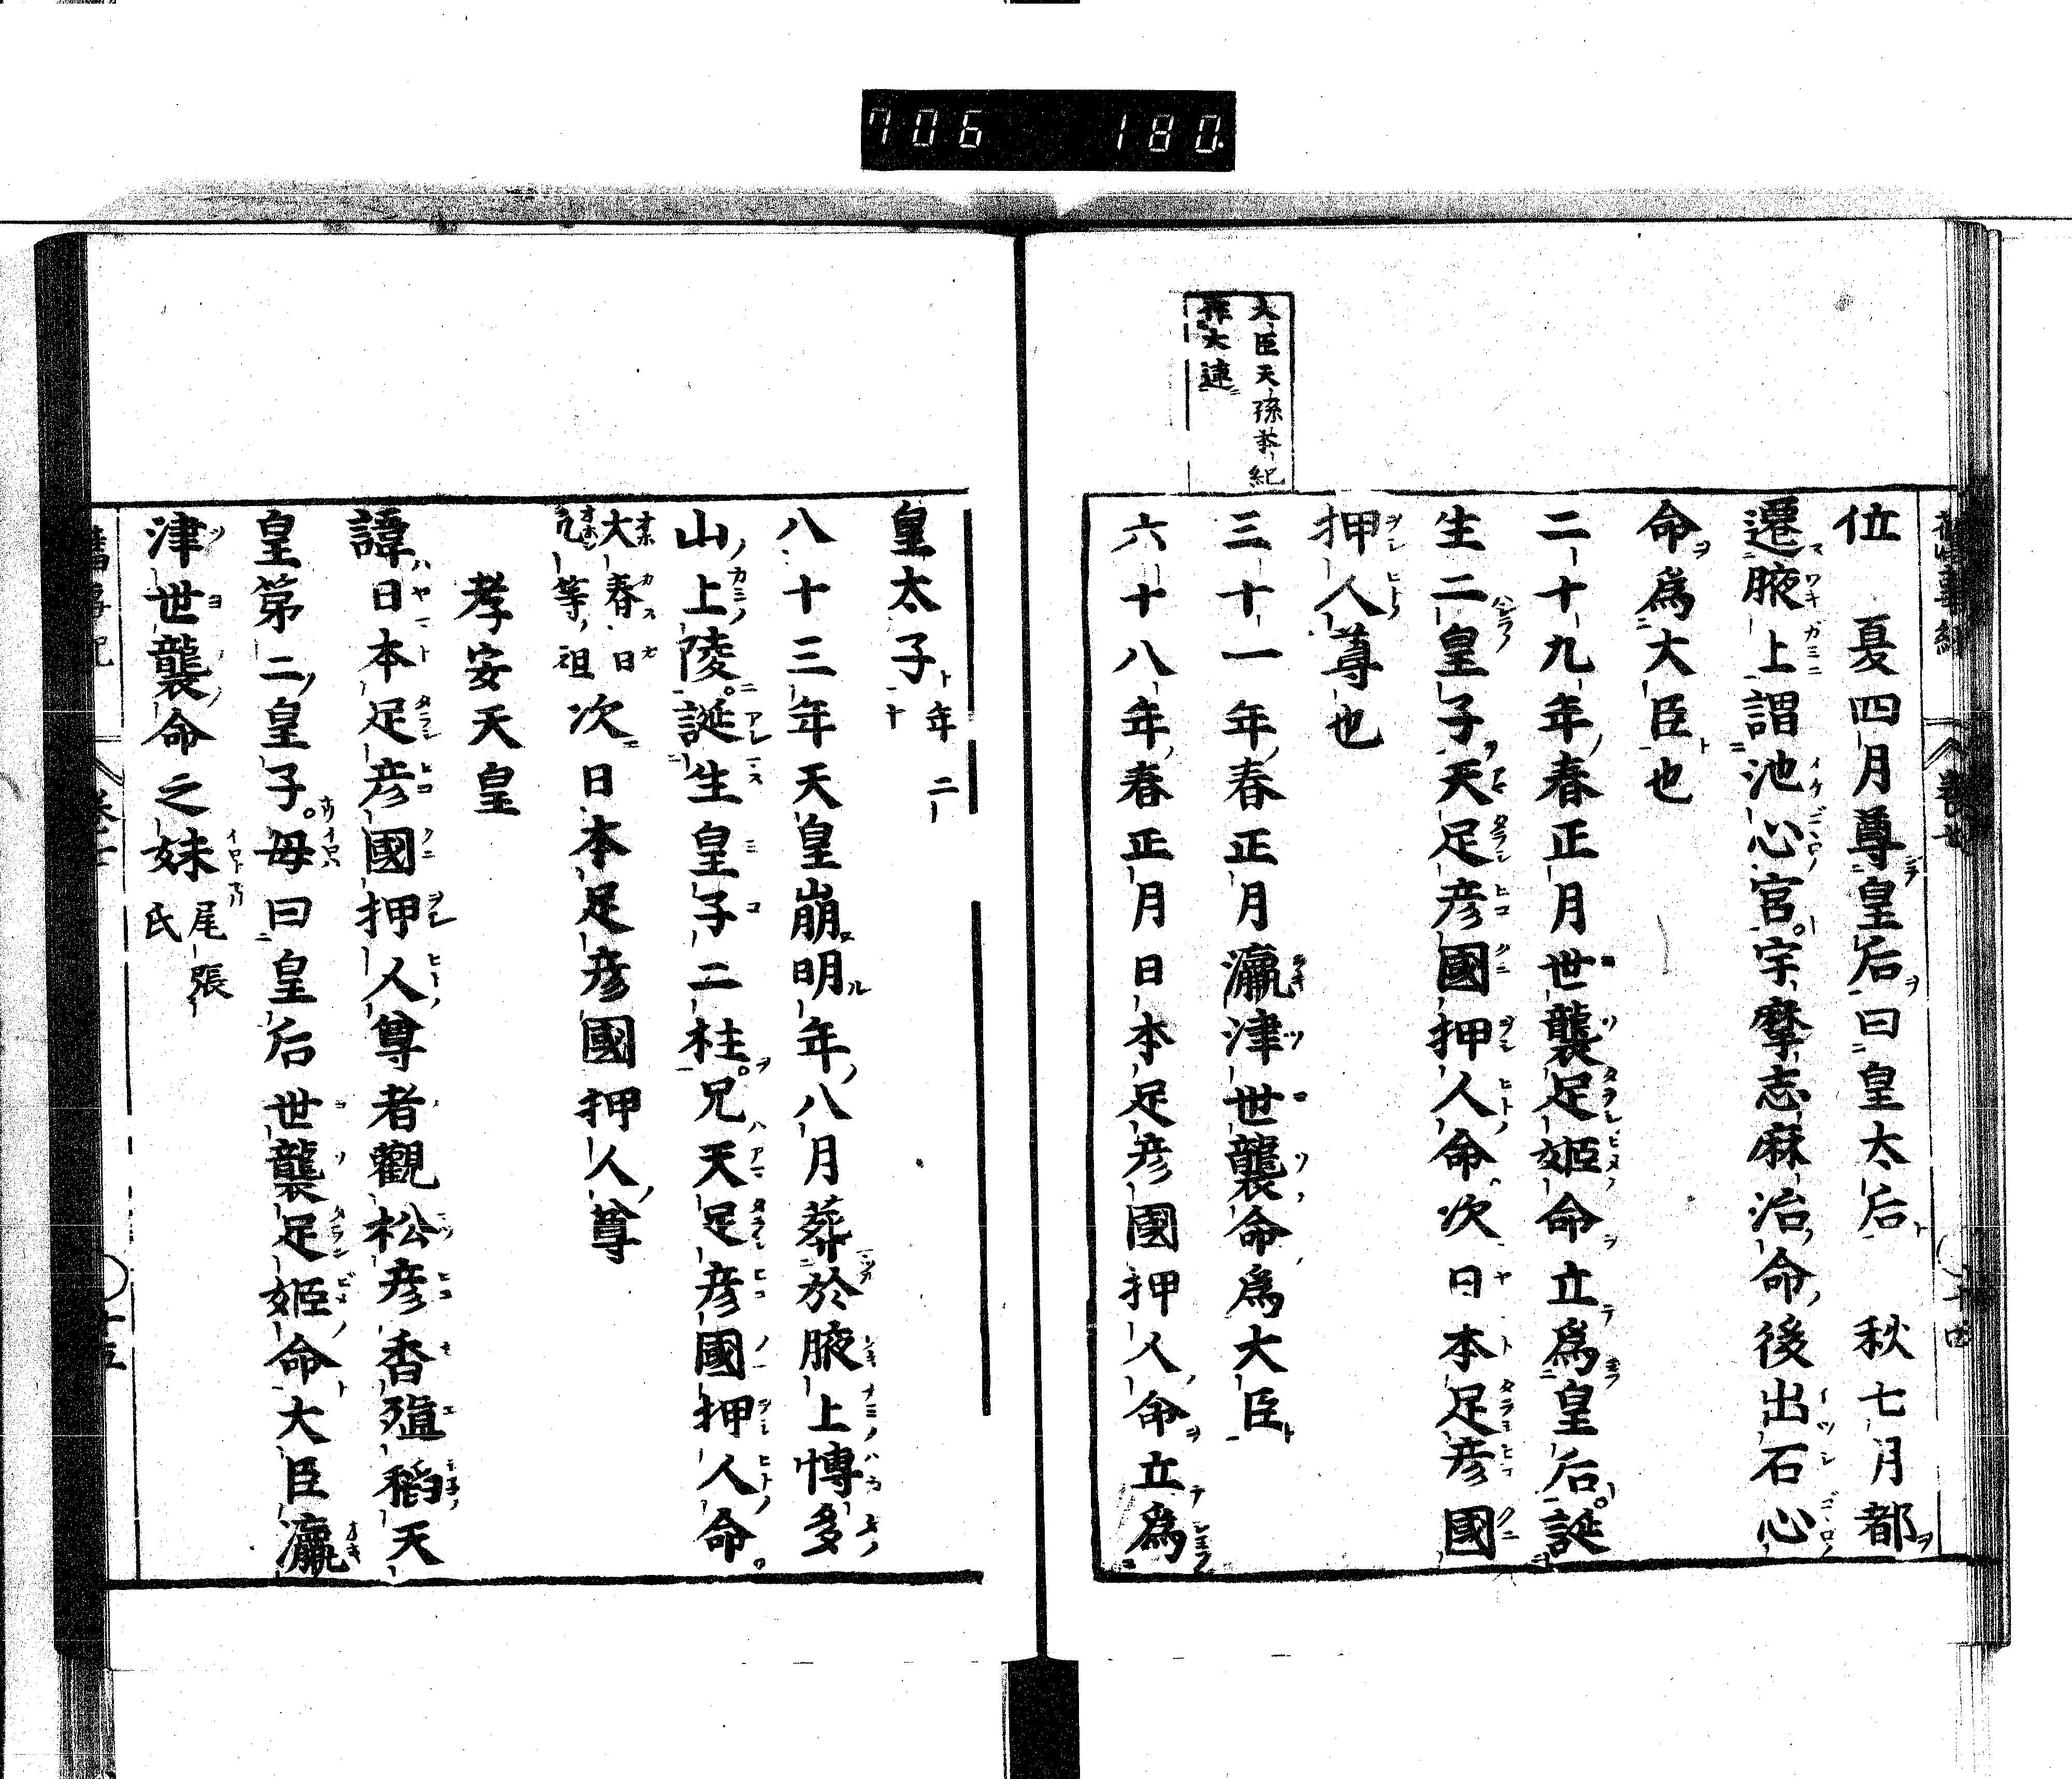 706 180
大臣天孫本紀
作大連
位 夏四月尊皇后曰皇太后 秋七月都
遷腋上謂池心宮。宇摩志麻治命後出石心
命爲大臣也
二十九年春正月世襲足姫命立爲皇后。誕
生二皇子天足彦國押人命。次日本足彦國
押人尊也
三十一年春正月瀛津世襲命爲大臣
六十八年春正月日本足彦國押人命立爲
皇太子 年二十
八十三年天皇崩明年八月葬於腋上博多
山上陵。誕生皇子二柱。兄天足彦國押人命。
大春日
等祖 次日本足彦國押人尊
孝安天皇
諱日本足彦國押人尊者觀松彦香殖稻天
皇第二皇子。母曰皇后世襲足姫命大臣瀛
津世襲命之妹 尾張氏